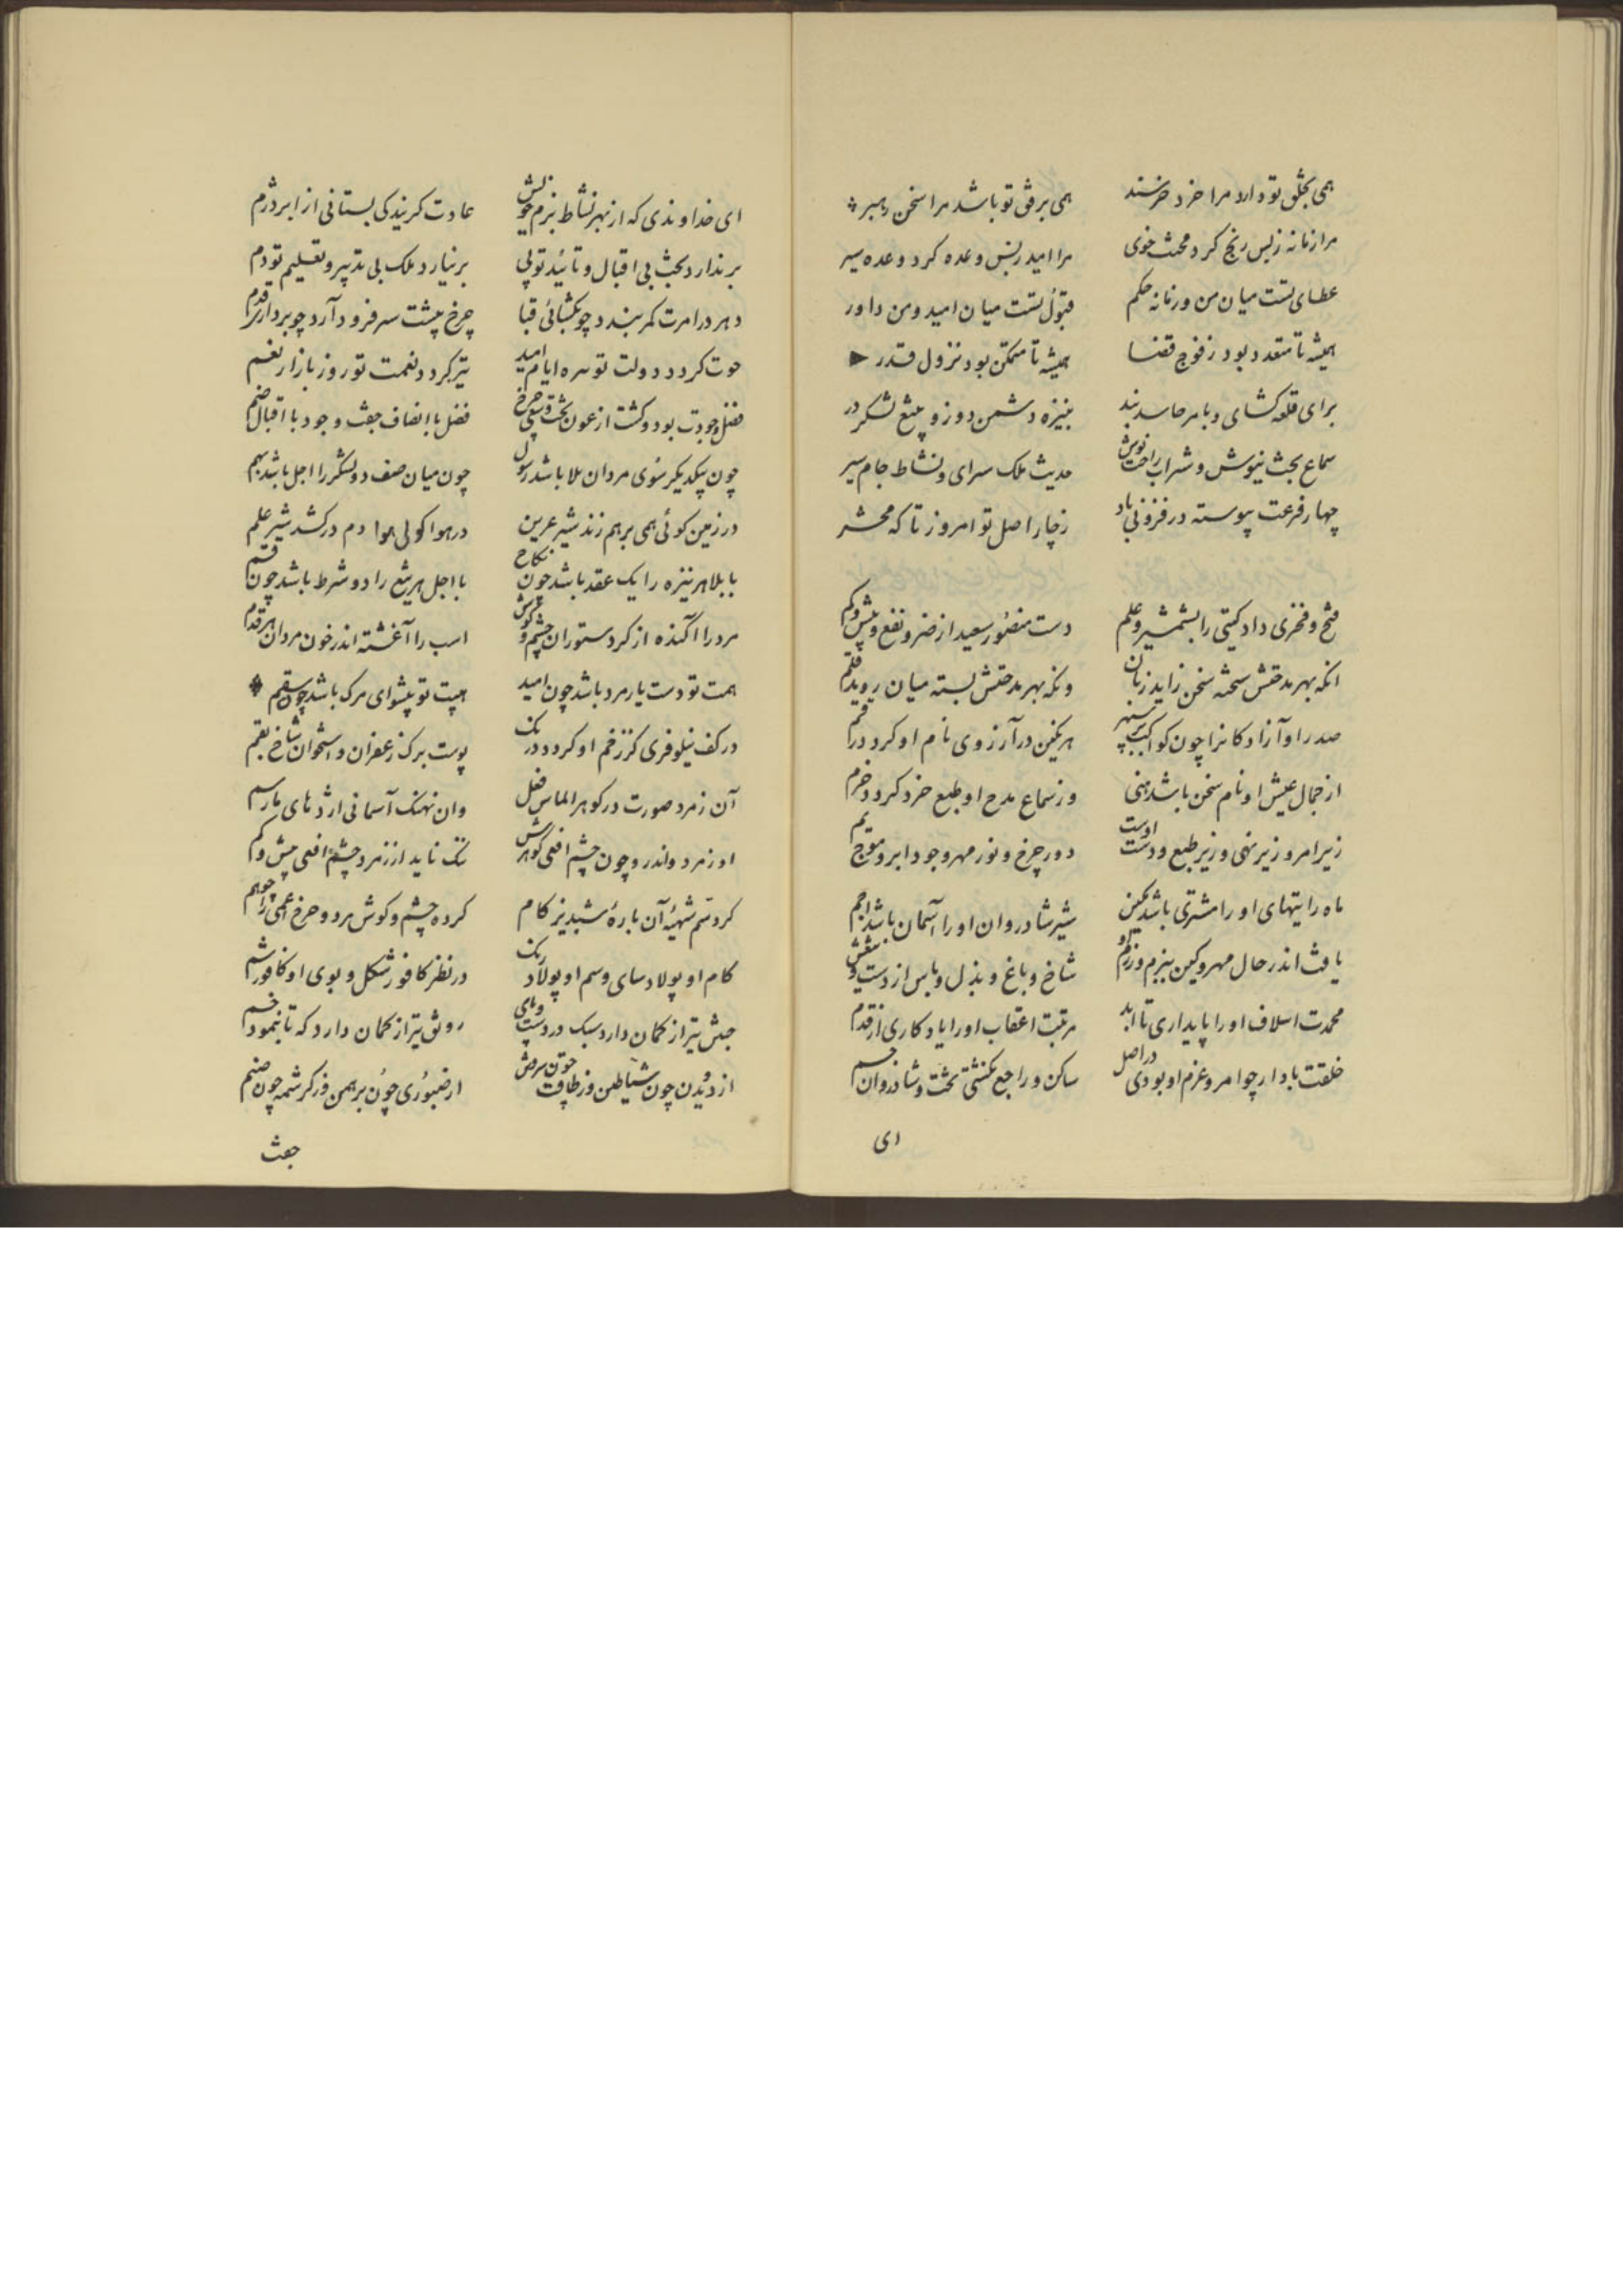 همی بخلق تو دارد مرا خرد خرسند همی برفق تو باشد مرا سخن رهبر
مرا زمانه زبس رنج کرد محنت خوی مرا امید زبس وعده کرد وعده سپر
عطای تست میان من و زمانه حکم قبول تست میان امید و من داور
همیشه تا متعدد بود ز فوج قضا همیشه تا متمکن بود نزول قدر
برای قلعه کشای و بامر حاسد بند بنیزه دشمن دوز و بتیغ لشکر در
سماع بخت نیوش و شراب راحت نوش حدیث ملک سرای و نشاط جام سپر
چهار فرعت پیوسته در فزونی باد ز چار اصل تو امروز تا که محشر
فتح و فخری داد کیتی را بشمشیر و علم دست منصور سعید از ضر و نفع و بیش و کم
انکه بهر مدحتش سخته سخن زاید زبان ونکه بهر مدحتش بسته میان روید قلم
صدر او آزادکانرا چون کواکب بر سپهر هر یکین در آرزوی نام او کردد درم
از جمال عیش او نام سخن باشد هنی وز سماع مدح او طبع خرد کردد خرم
زیر امر و زیر نهی و زیر طبع و دست اوست دور چرخ و نور مهر و جود ابر و موج یم
ماه رایتهای او را مشتری باشد مکین شیر شادروان او را آسمان باشد اجم
یافت اندر حال مهر و کین ببزم و رزم و شاخ و باغ و بذل و باس از دست و تیغش
محمدت اسلاف او را پایداری تا ابد مرتبت اعقاب او را یادکاری از قدم
خلقت باد ار چو امر و عزم او بودی در اصل ساکن و راجع نکشتی تخت و شادروان جم
ای
ای خداوندی که از بهر نشاط بزم خویش عادت کریندکی بستانی از ابر دژم
بر ندارد بخت بی اقبال و تائید تو پی بر نیارد ملک بی تدبیر و تعلیم تو دم
دهر در امرت کمر بندد چو بکشائی قبا چرخ پیشت سر فرود آرد چو برداری قدم
حوت کردد دولت تو سره ایام امید تیز کردد نعمت تو روز بازار نعم
فضل و جودت بود و کشت از عون بخت و سعی چرخ فضل با انصاف جفت و جود با اقبال ضم
چون بیکدیکر سوی مردان بلا باشد رسول چون میان صف دو لشکر را اجل باشد بهم
در زمین کوئی همی بر هم زند شیر عرین در هوا کوئی هوا دم در کشد شیر علم
با بلا هر نیزه را یک عقد باشد چون نکاح با اجل هر تیغ را دو شرط باشد چون قسم
مرد را آکنده از کرد ستوران چشم و کوش اسب را آغشته اندر خون مردان هر قدم
همت تو دست یار مرد باشد چون امید هیبت تو پیشوای مرک باشد چون سقم
در کف نیلوفری کز زخم او کردد درنک پوست برک زعفران و استخوان شاخ بقم
آن زمرد صورت در کوهر الماس فعل وان نهنک آسمانی اژدهای
او زمرد و اندرو چون چشم افعی کوهرش ننک ناید از زمرد چشم افعی بیش و کم
کرد سم شیهه آن باره شبدیز کام کرده چشم و کوش مرد و چرخ اعمی را چو هم
کام او پولاد سای و سم او پولاد رنک در نظر کافور شکل و بوی او کافور شم
جش تیر از کمان دارد سبک در دست و پای رویش تیر از کمان دارد که تا بنمود خم
از دویدن چون شیاطین وز طاقت چون سرش از صبوری چون برهمن وز کرشمه چون صنم
جفت